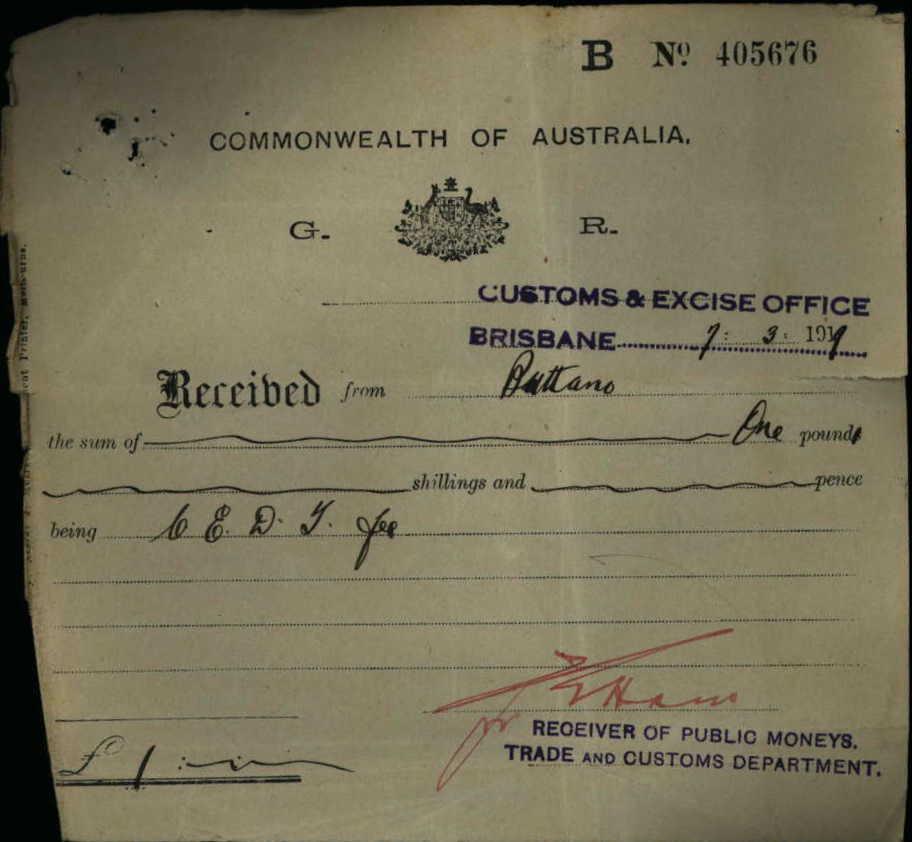 B No 405676
COMMONWEALTH OF AUSTRALIA.
G. R.
CUSTOMS & EXCISE OFFICE
BRISBANE 7: 3: 1919
Received from Buttano
the sum of One pound
shillings and pence
being C E. D. T. fee
RECEIVER OF PUBLIC MONEYS.
£ 1 : :
TRADE AND CUSTOMS DEPARTMENT.